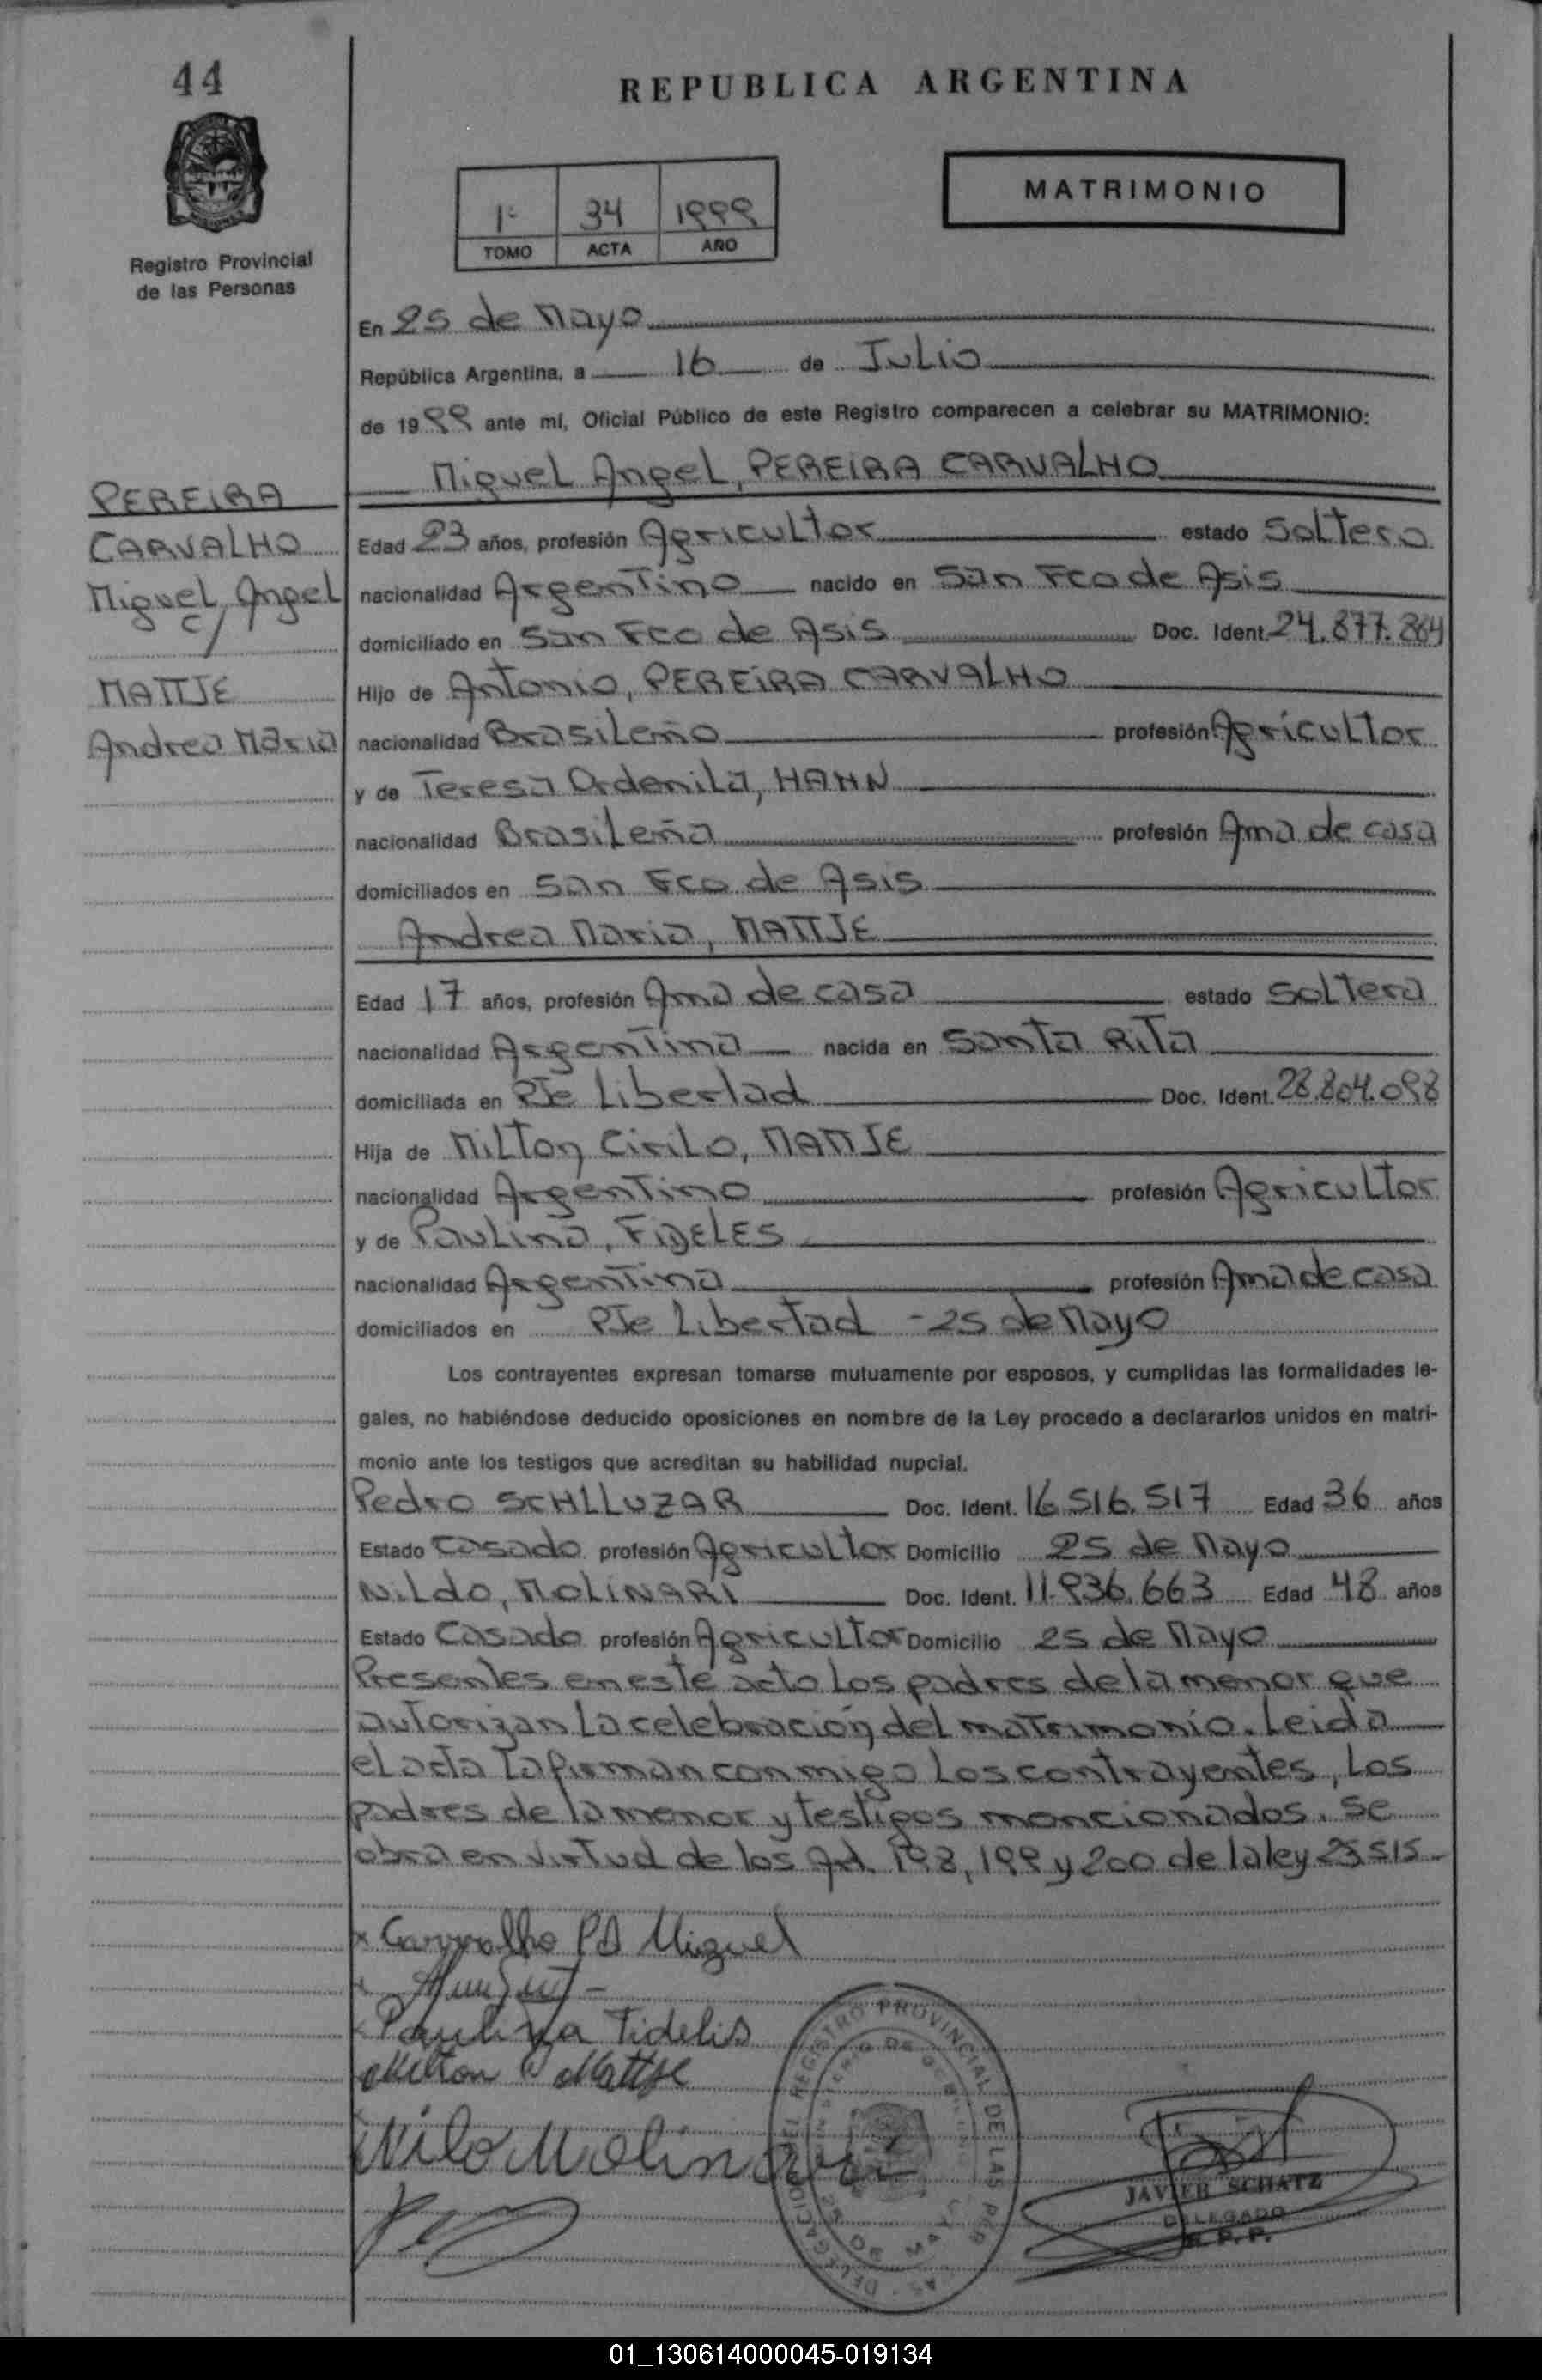 44
REPUBLICA ARGENTINA
MATRIMONIO
1º 34 1999
TOMO ACTA AÑO
Registro Provincial
de las Personas
En 25 de Mayo
República Argentina, a 16 de Julio
de 1999 ante mí, Oficial Público de este Registro comparecen a celebrar su MATRIMONIO:
Miguel Angel, PEREIRA CARVALHO
PEREIRA
CARVALHO
Miguel Angel
c/
MATTJE
Andrea Maria
Edad 23 años, profesión Agricultor estado Soltero
nacionalidad Argentino nacido en San Fco de Asis
domiciliado en San Fco de Asis Doc. Ident. 24.877.864
Hijo de Antonio, PEREIRA CARVALHO
nacionalidad Brasileño profesión Agricultor
y de Teresa Ordenila, HAHN
nacionalidad Brasileña profesión Ama de casa
domiciliados en San Fco de Asis
Andrea Maria, MATTJE
Edad 17 años, profesión Ama de casa estado Soltera
nacionalidad Argentina nacida en Santa Rita
domiciliada en Pje Libertad Doc. Ident. 28.804.098
Hija de Milton Cirilo, MATTJE
nacionalidad Argentino profesión Agricultor
y de Paulina, FIDELES
nacionalidad Argentina profesión Ama de casa
domiciliados en Pje Libertad - 25 de Mayo
Los contrayentes expresan tomarse mutuamente por esposos, y cumplidas las formalidades le-
gales, no habiéndose deducido oposiciones en nombre de la Ley procedo a declararlos unidos en matri-
monio ante los testigos que acreditan su habilidad nupcial.
Pedro SCHLLUZAR Doc. Ident. 16.516.517 Edad 36 años
Estado Casado profesión Agricultor Domicilio 25 de Mayo
Nildo, MOLINARI Doc. Ident. 11.936.663 Edad 48 años
Estado Casado profesión Agricultor Domicilio 25 de Mayo
Presentes en este acto Los padres de la menor que
autorizan La celebración del matrimonio. Leida
el acta La firman conmigo Los contrayentes, Los
padres de la menor y testigos moncionados. Se
obra en virtud de los Art. 198, 199 y 200 de la ley 23515
x Carvalho PA Miguel
Paulina Fidelis
Milton C Mattje
Nilo Molinari
REGISTRO PROVINCIAL DE LAS PER
JAVIER SCHATZ
DELEGADO
R.P.P.
01_130614000045-019134